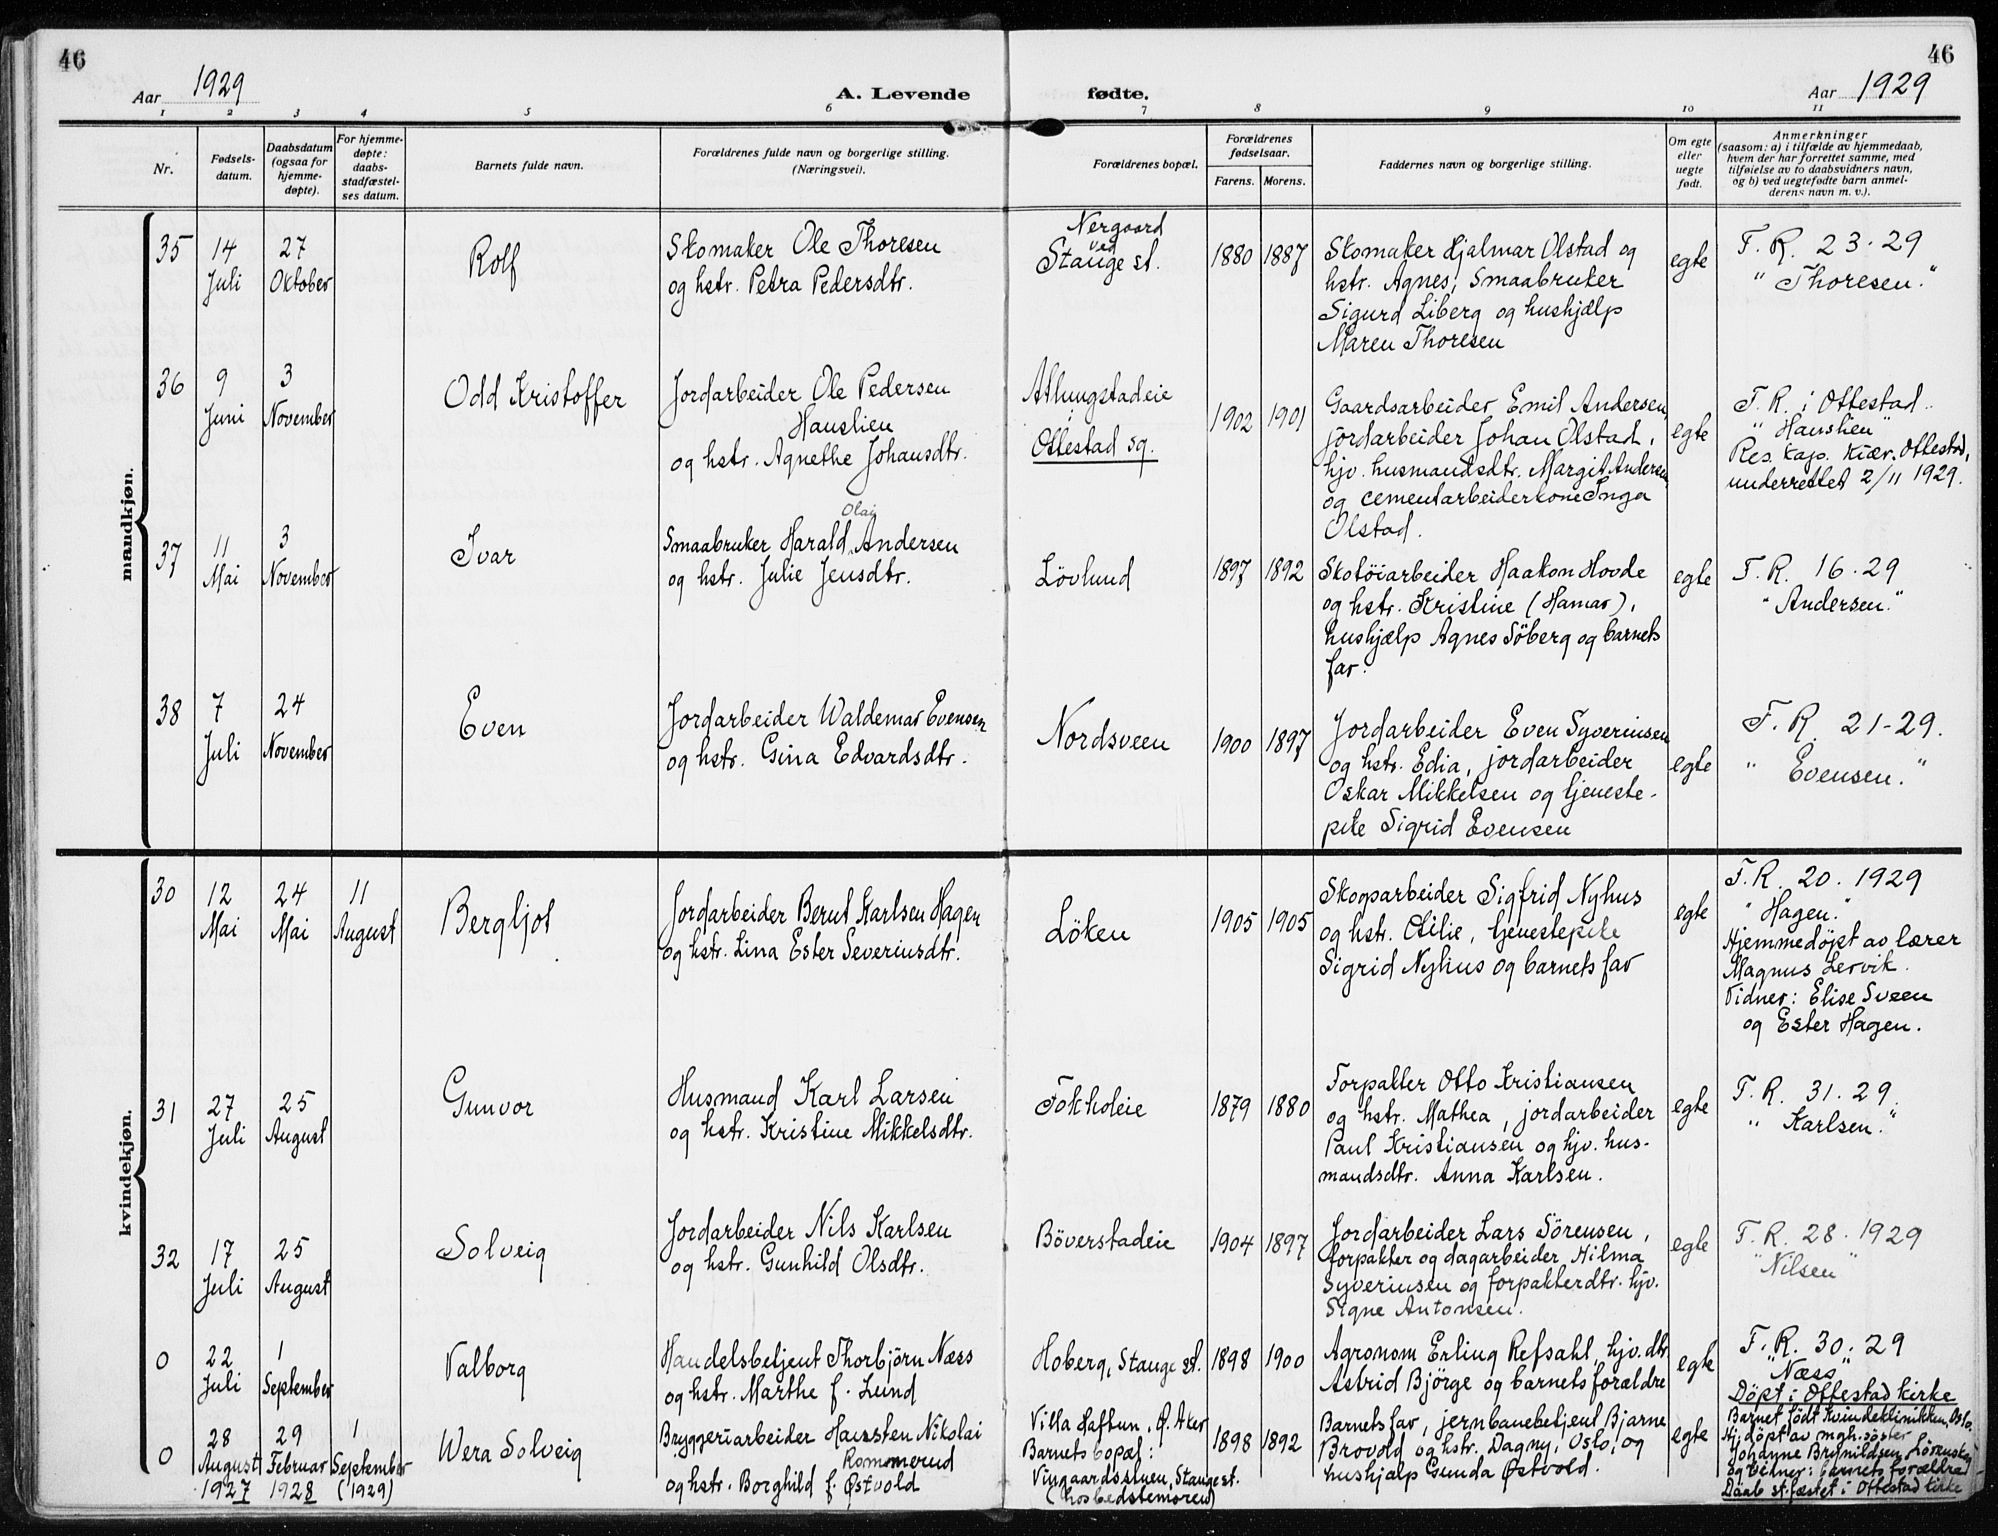 46
46
Aar 1929
A. Levende
fødte.
Aar 1929
1 2 3 4 5 6 7 8 9 10 11
Nr.
Fødsels-
datum.
Daabsdatum
(ogsaa for
hjemme-
døpte).
For hjemme-
døpte:
daabs-
stadfæstel-
ses datum.
Barnets fulde navn.
Forældrenes fulde navn og borgerlige stilling.
(Næringsvei).
Forældrenes bopæl.
Forældrenes
fødselsaar.
Farens. Morens.
Faddernes navn og borgerlige stilling.
Om egte
eller
uegte
født.
Anmerkninger
(saasom: a) i tilfælde av hjemmedaab,
hvem der har forrettet samme, med
tilføielse av to daabsvidners navn,
og b) ved uegtefødte barn anmel-
derens navn m. v.).
mandkjøn.
35
14
Juli
27
Oktober
Rolf
Skomaker Ole Thoresen
og hstr. Petra Pedersdtr.
Nergaard
ved
Stange st.
1880 1887
Skomaker Hjalmar Olstad og
hstr. Agnes, Smaabruker
Sigurd Liberg og hushjælp
Maren Thoresen
egte
F. R. 23. 29
" Thoresen."
36
9
Juni
3
November
Odd Kristoffer
Jordarbeider Ole Pedersen
Hauslien
og hstr. Agnethe Johansdtr.
Atlungstadeie
Ottestad sq.
1902 1901
Gaardsarbeider Emil Andersen,
jordarbeider Johan Olstad,
hjv. husmandsdtr. Margit Andersen
og cementarbeiderkone Inga
Olstad.
egte
F. R. i Ottestad..
" Hauslien"
Res. kap. Kiær, Ottestad,
underrettet 2/11 1929.
37
11
Mai
3
November
Ivar
Olai
Smaabruker Harald Andersen
og hstr. Julie Jensdtr.
Lövlund
1897 1892
Skotöiarbeider Haakon Hovde
og hstr. Kristine (Hamar),
hushjælp Agnes Söberg og barnets
far.
egte
F. R. 16. 29
" Andersen."
38
7
Juli
24
November
Even
Jordarbeider Waldemar Evensen
og hstr. Gina Edvardsdtr.
Nordsveen
1900 1897
Jordarbeider Even Syverinsen
og hstr. Edia, jordarbeider
Oskar Mikkelsen og tjeneste-
pike Sigrid Evensen
egte
F. R. 21-29.
" Evensen."
kvindekjøn.
30
12
Mai
24
Mai
11
August
Bergljot
Jordarbeider Bernt Karlsen Hagen
og hstr. Lina Ester Severinsdtr.
Löken
1905 1905
Skogsarbeider Sigfrid Nyhus
og hstr. Otilie, tjenestepike
Sigrid Nyhus og barnets far
egte
F. R. 20. 1929
" Hagen."
Hjemmedöpt av lærer
Magnus Lervik.
Vidner: Elise Sveen
og Ester Hagen.
31
27
Juli
25
August
Gunvor
Husmand Karl Larsen
og hstr. Kristine Mikkelsdtr.
Fokholeie
1879 1880
Forpakter Otto Kristiansen
og hstr. Mathea, jordarbeider
Paul Kristiansen og hjv. hus-
mandsdtr. Anna Karlsen.
egte
F. R. 31. 29.
" Karlsen."
32
17
Juli
25
August
Solveig
Jordarbeider Nils Karlsen
og hstr. Gunhild Olsdtr.
Böverstadeie
1904 1897
Jordarbeider Lars Sörensen,
forpakter og dagarbeider Hilma
Syverinsen og forpakterdtr. hjv.
Signe Antonsen.
egte
F. R. 28. 1929
"Nilsen"
0
22
Juli
1
September
Valborg
Handelsbetjent Thorbjörn Næss
og hstr. Marthe f. Lund
Hoberg, Stange st.
1898 1900
Agronom Erling Refsahl, hjv. dtr.
Astrid Björge og barnets forældre
egte
F. R. 30. 29
"Næss"
Döpt i Ottestad kirke
0
28
August
1927
29
Februar
1928
1
September
(1929)
Wera Solveig
Bryggeriarbeider Haussten Nikolai
Romomerud
og hstr. Borghild f. Østvold
Villa Haftun, Ø. Aker
Barnets bopæl:
Vingaardsstuen, Stange st.
(hos bedstemoren)
1898 1892
Barnets far, jernbanebetjent Bjarne
Brovold og hstr. Dagny, Oslo, og
hushjælp Gunda Østvold.
egte
Barnet födt Kvindeklinikken, Oslo.
Hj.döpt av mgh.söster
Johanne Brynildsen, Lörenskog
og vidner: barnets forældre
Daab st.fæstet i Ottestad kirke